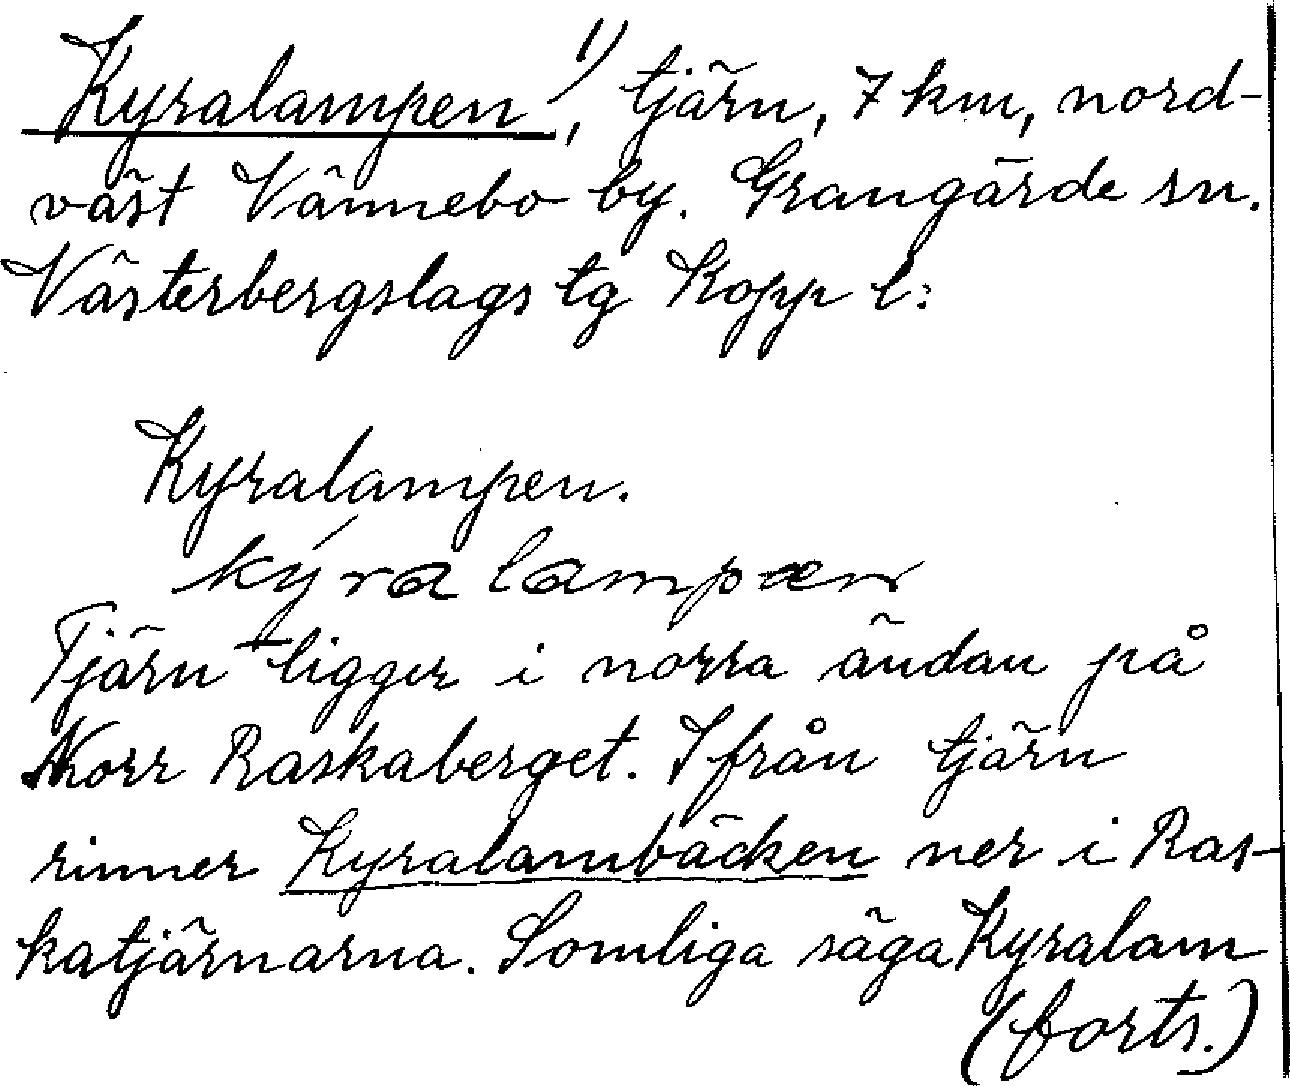 Kyralampen¹⁾, tjärn, 7 km, nord-
väst Vännebo by. Grangärde sn.
Västerbergslags tg Kopp l:
Kyralampen.
kýra lampæn
Tjärn ligger i norra ändan på
Norr Raskaberget. Ifrån tjärn
rinner Kyralambäcken ner i Ras-
katjärnarna. Somliga säga Kyralam
(forts.)